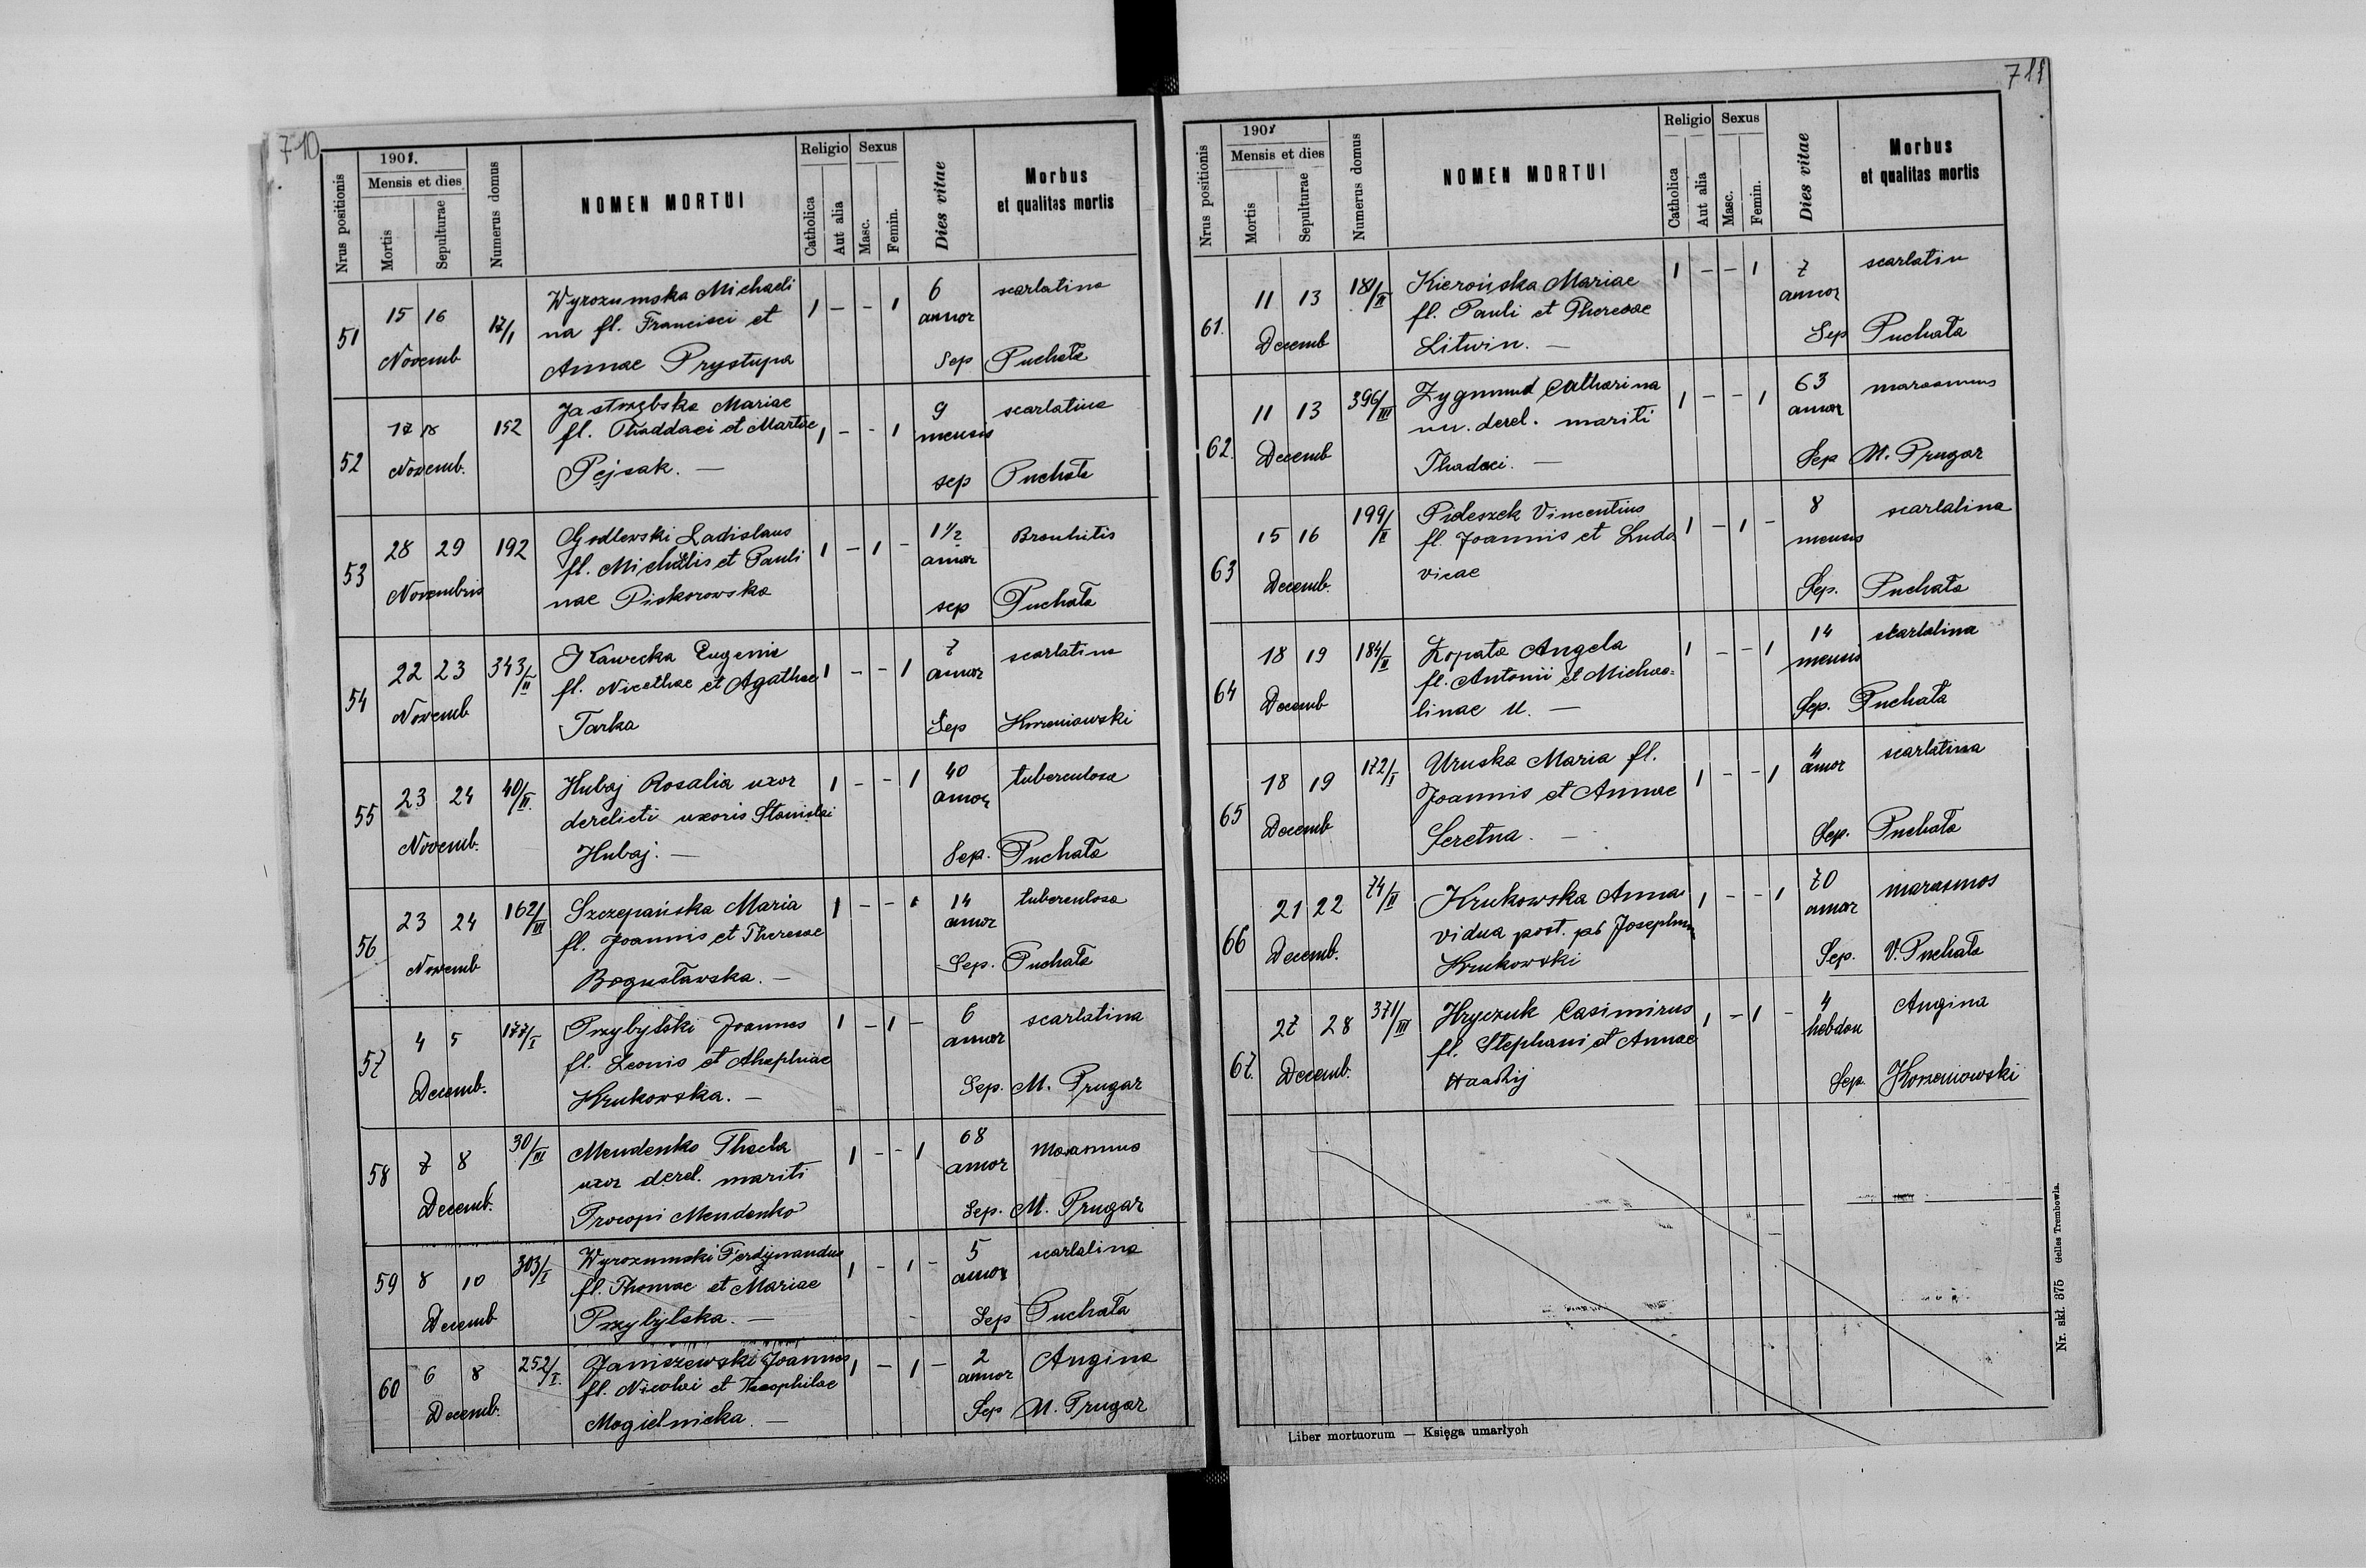 710
1908.
Nrus positionis
Mensis et dies
Mortis
Sepulturae
Numerus domus
NOMEN MORTUI
Religio
Catholica
Aut alia
Sexus
Masc.
Femin.
Dies vitae
Morbus
et qualitas mortis
51 15 16 17/I Wyrozumska Michaeli 1 - - 1 6 scarlatina
na fl. Francisci et annor
Novemb Annae Prystupa Sep Puchała
52 17 18 152 Jastrzębska Mariae 9 scarlatina
fl. Thaddaei et Martae 1 - - 1 mensis
Novemb. Pejsak. — sep Puchała
53 28 29 192 Godlewski Ladislaus 1 - 1 - 1 1/2 Bronhitis
fl. Michælis et Pauli annor
Novembris nae Piskorowska sep Puchała
54 22 23 343/II Kawecka Eugenia 1 - - 1 7 scarlatina
fl. Nicethae et Agathae annor
Novemb Tarka Sep Komoniowski
55 23 24 40/II. Hubaj Rosalia uxor 1 - - 1 40 tuberculosa
derelicti uxoris Stanislai annor
Novemb. Hubaj. — Sep. Puchała
56 23 24 162/VI Szczepańska Maria 1 - - 1 14 tuberculosa
fl. Joannis et Theresae annor
Novemb Bogusławska. — Sep. Puchała
57 4 5 177/I Przybylski Joannes 1 - 1 - 6 scarlatina
fl. Leonis et annor
Decemb. Krukowska. — Sep. M. Prugar
58 7 8 30/III Mendenko Thecla 1 - - 1 68 marasmus
uxor derel. mariti annor
Decemb. Procopi Mendenko Sep. M. Prugar
59 8 10 303/I Wyrozumski Ferdynandus 1 - 1 - 5 scarlatina
fl. Thomae et Mariae annor
Decemb Przybylska. — Sep Puchała
60 6 8 252/I. Janiszewski Joannes 1 - 1 - 2 Angina
fl. Nicolai et Theophilae annor
Decemb. Mogielnicka. — Sep M. Prugar
711
1908
Nrus positionis
Mensis et dies
Mortis
Sepulturae
Numerus domus
NOMEN MORTUI
Religio
Catholica
Aut alia
Sexus
Masc.
Femin.
Dies vitae
Morbus
et qualitas mortis
61. 11 13 181/II Kierońska Mariae 1 - - 1 7 scarlatin
fl. Pauli et Theresae annor
Decemb Litwin. — Sep Puchała
62. 11 13 396/III Zygmund Catharina 1 - - 1 63 marasmus
derel. mariti annor
Decemb Thadaei. — Sep M. Prugar
63 15 16 199/II Pideszek Vincentius 1 - 1 - 8 scarlatina
fl. Joannis et Ludo mensis
Decemb. vicae Sep. Puchała
64 18 19 184/II Łopata Angela 1 - - 1 14 skarlatina
fl. Antonii et Michae= mensis
Decemb linae U. — Sep. Puchała
65 18 19 172/I Uruska Maria fl. 1 - - 1 4 scarlatina
Joannis et Annae annor
Decemb Seretna. — Sep. Puchała
66 21 22 74/II Krukowska Anna 1 - - 1 70 marasmos
vidua post. Josephum annor
Decemb. Krukowski Sep. V. Puchała
67. 27 28 371/III Hryczuk Casimirus 1 - 1 - 4 Angina
fl. Stephani et Annae hebdom
Decemb. Sep. Komoniowski
Liber mortuorum — Księga umarłych
Nr. skł. 375 Gelles Trembowla.